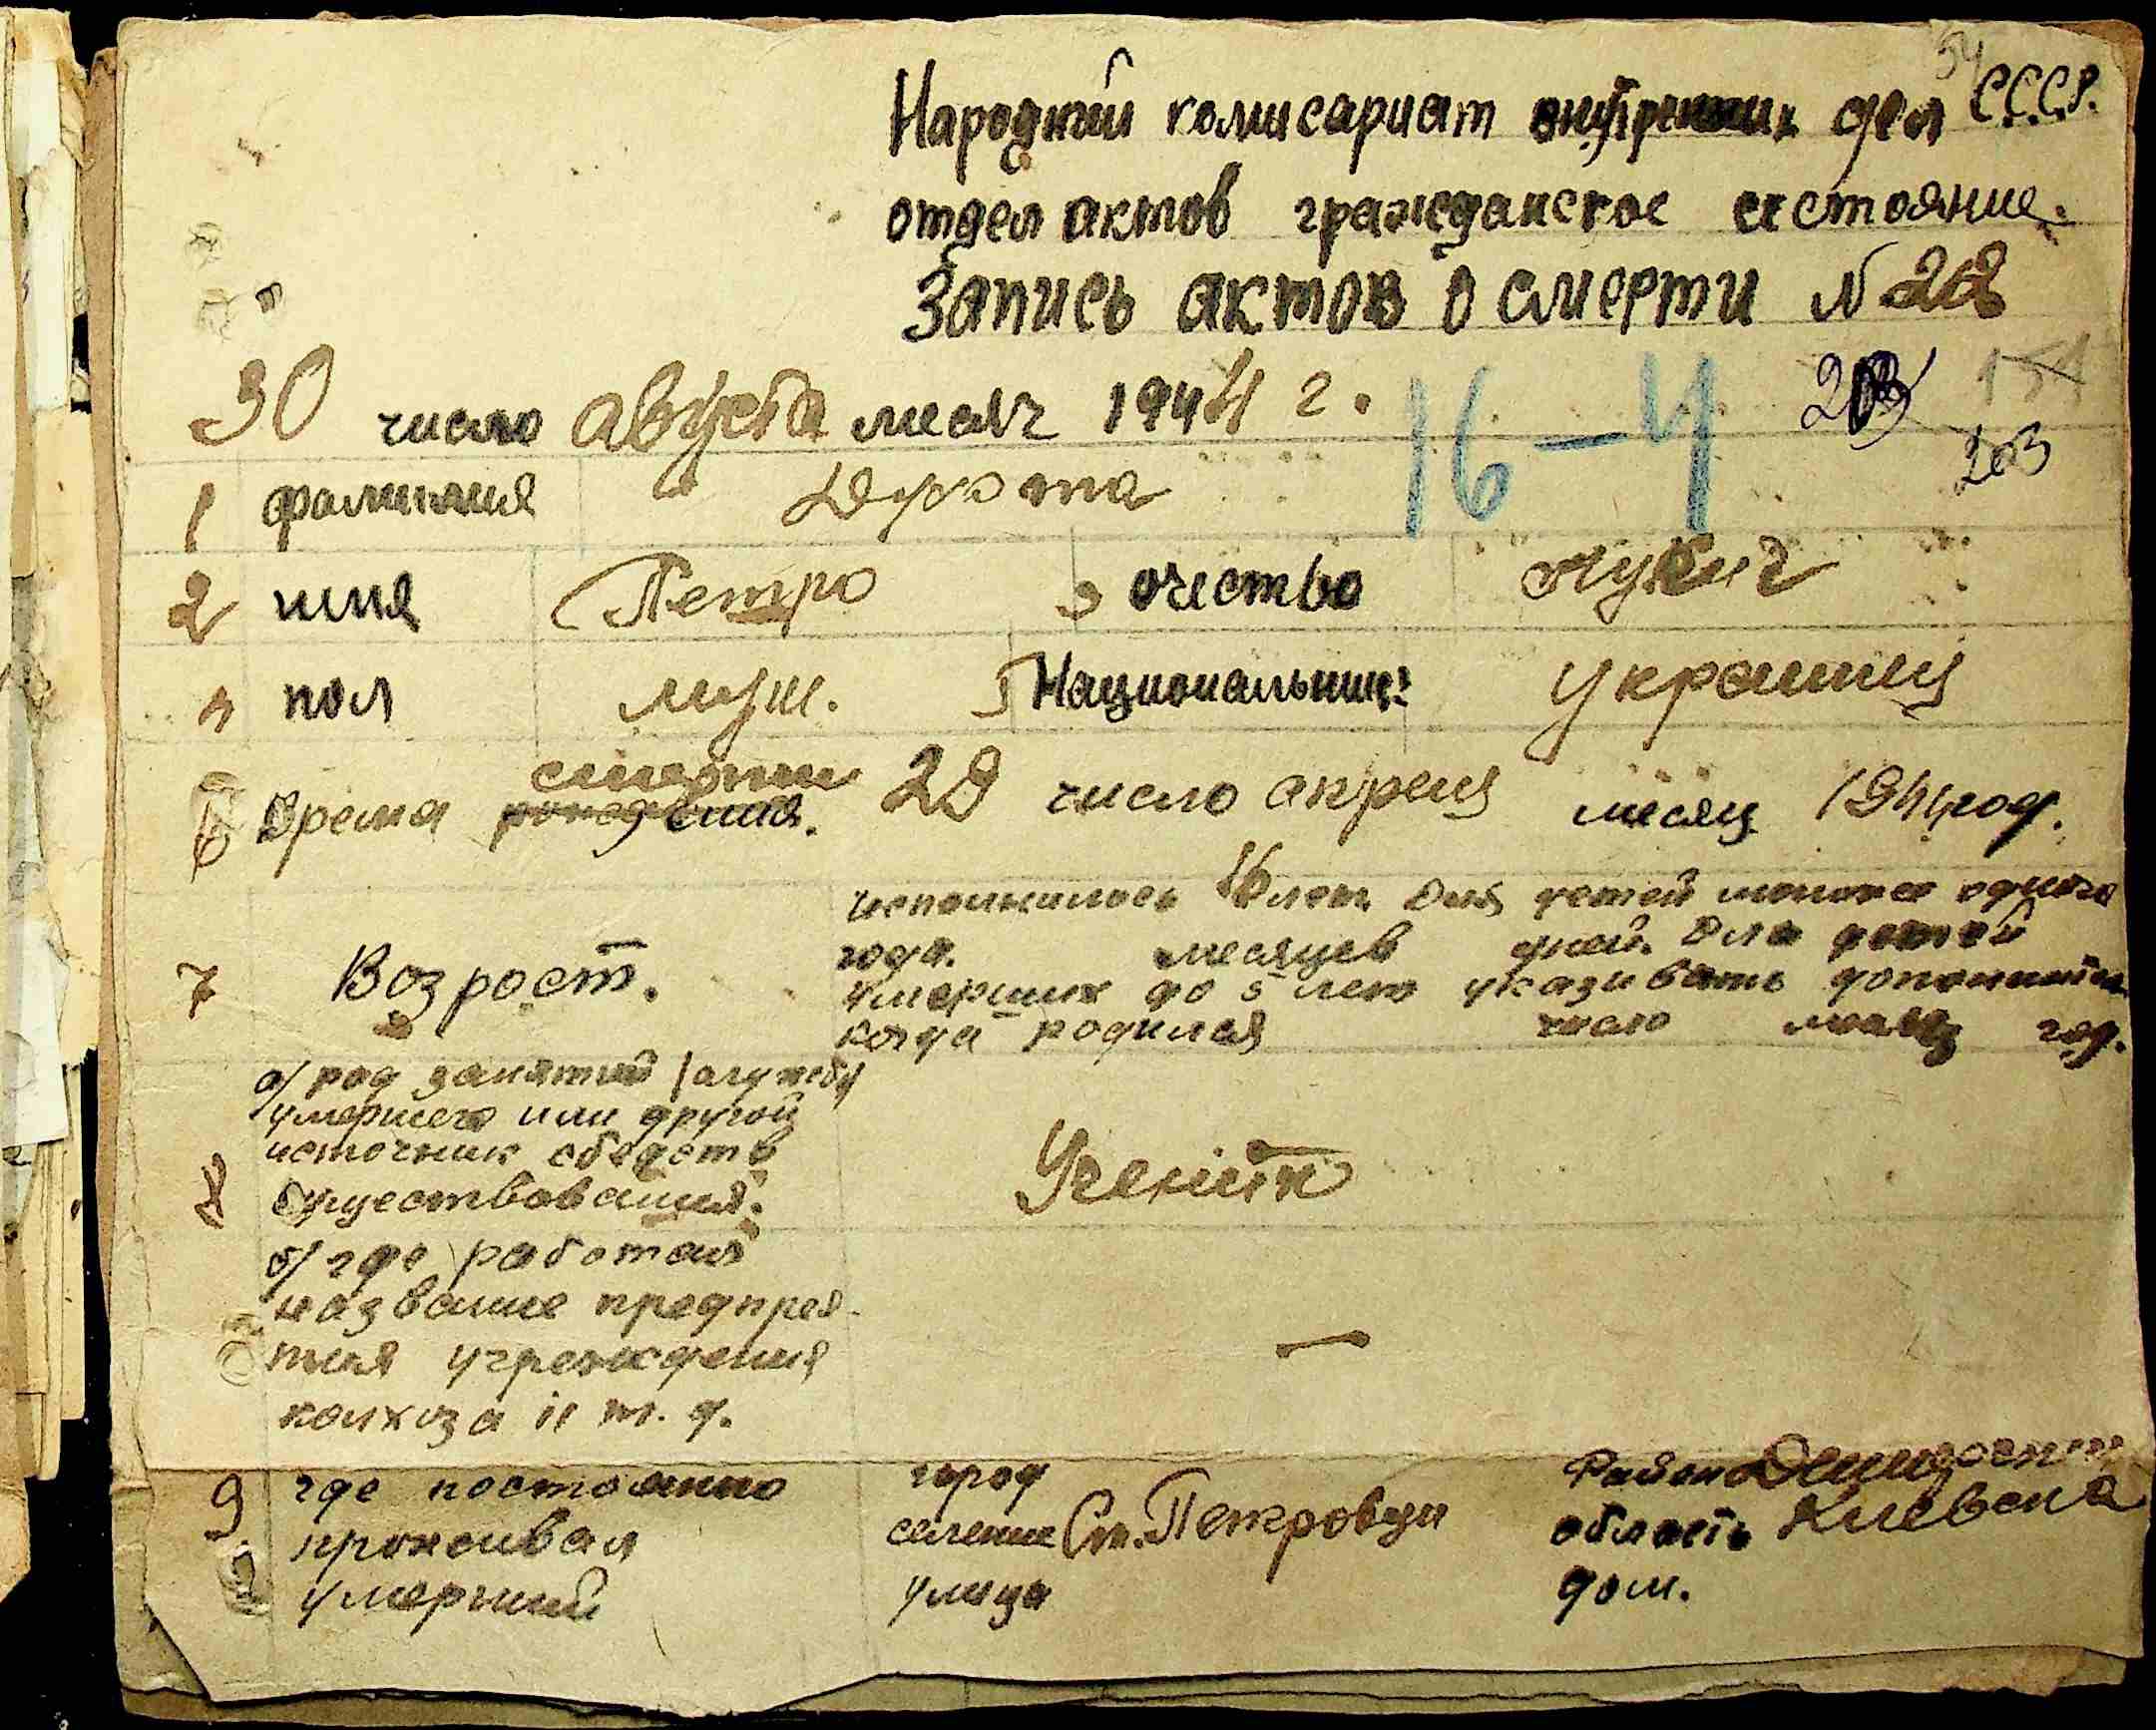 54
Народний комисариат внутренних дел С.С.С.Р.
отдел актов гражданское состояние.
Запись актов о смерти №
30 число августа месяч 1944 г. 16-4
203
1 фамилия
2 имя Петро 3 очество
4 пол муж. 5 Национальник: украинец
смерти
6 Время рождения. 29 число апреля месяц 1944 год.
исполнилось 16 лет. Для детей моложе одного
7 Возрост. года. месяцев дней. Для детей
умерших до 5 лет указивать
когда родился число месяц год.
а/ род занятий /службу
умершего или другой
источник сбедств
8 существования. Ученик
б/ где работал
название предпрея-
тия учреждения —
колхоза и т. д.
9 где постоянно город Район
проживал селение Ст. Петровци область Киевска
умерший улица дом.